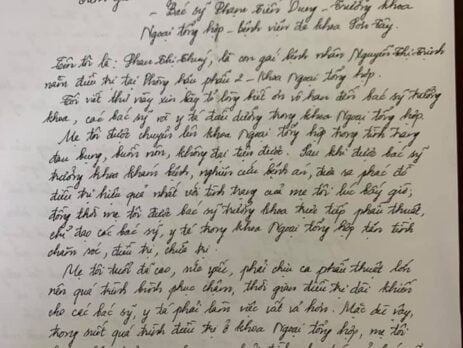 - Bác sỹ Phạm Tiến Dũng - Trưởng khoa
Ngoại tổng hợp - bệnh viện đa khoa Sơn Tây.
Tên tôi là: Phan Thị Thuý, là con gái bệnh nhân Nguyễn Thị Trinh
nằm điều trị tại Phòng hậu phẫu 2 - Khoa Ngoại Tổng hợp.
Tôi viết thư này xin bày tỏ lòng biết ơn vô hạn đến bác sỹ trưởng
khoa, các bác sỹ và y tá điều dưỡng trong khoa Ngoại Tổng hợp.
Mẹ tôi được chuyển lên khoa Ngoại Tổng hợp trong tình trạng
đau bụng, buồn nôn, không đại tiện được. Sau khi được bác sỹ
trưởng khoa khám bệnh, nghiên cứu bệnh án, đưa ra phác đồ
điều trị hiệu quả nhất với tình trạng của mẹ tôi lúc bấy giờ,
đồng thời mẹ tôi được bác sỹ trưởng khoa trực tiếp phẫu thuật,
chỉ đạo các bác sỹ, y tá trong khoa Ngoại Tổng hợp tận tình
chăm sóc, điều trị, chữa trị.
Mẹ tôi tuổi đã cao, sức yếu, phải chịu ca phẫu thuật lớn
nên quá trình bình phục chậm, thời gian điều trị dài khiến
cho các bác sỹ, y tá phải làm việc vất vả hơn. Mặc dù vậy,
trong suốt quá trình điều trị ở khoa Ngoại Tổng hợp, mẹ tôi